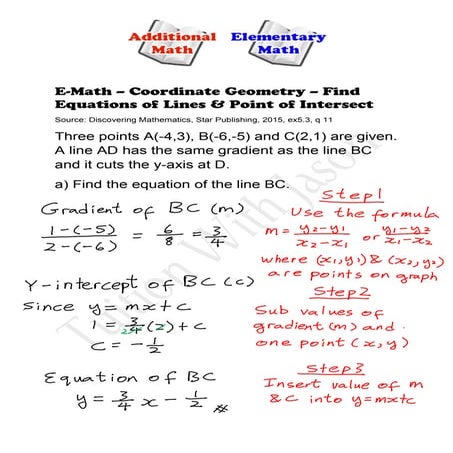 Additional Elementary
Math Math
E-Math – Coordinate Geometry – Find
Equations of Lines & Point of Intersect
Source: Discovering Mathematics, Star Publishing, 2015, ex5.3, q 11
Three points A(-4,3), B(-6,-5) and C(2,1) are given.
A line AD has the same gradient as the line BC
and it cuts the y-axis at D.
a) Find the equation of the line BC.
Gradient of BC (m)
1-(-5)/2-(-6) = 6/8 = 3/4
Y-intercept of BC (c)
Since y=mx+c
1 = 3/4(2)+c
c = -1/2
Equation of BC
y = 3/4 x - 1/2
Step1
Use the formula
m = y2-y1/x2-x1 or y1-y2/x1-x2
where (x1,y1) & (x2,y2)
are points on graph
Step2
Sub values of
gradient (m) and
one point (x,y)
Step3
Insert value of m
& c into y=mx+c
Tuition With Jason